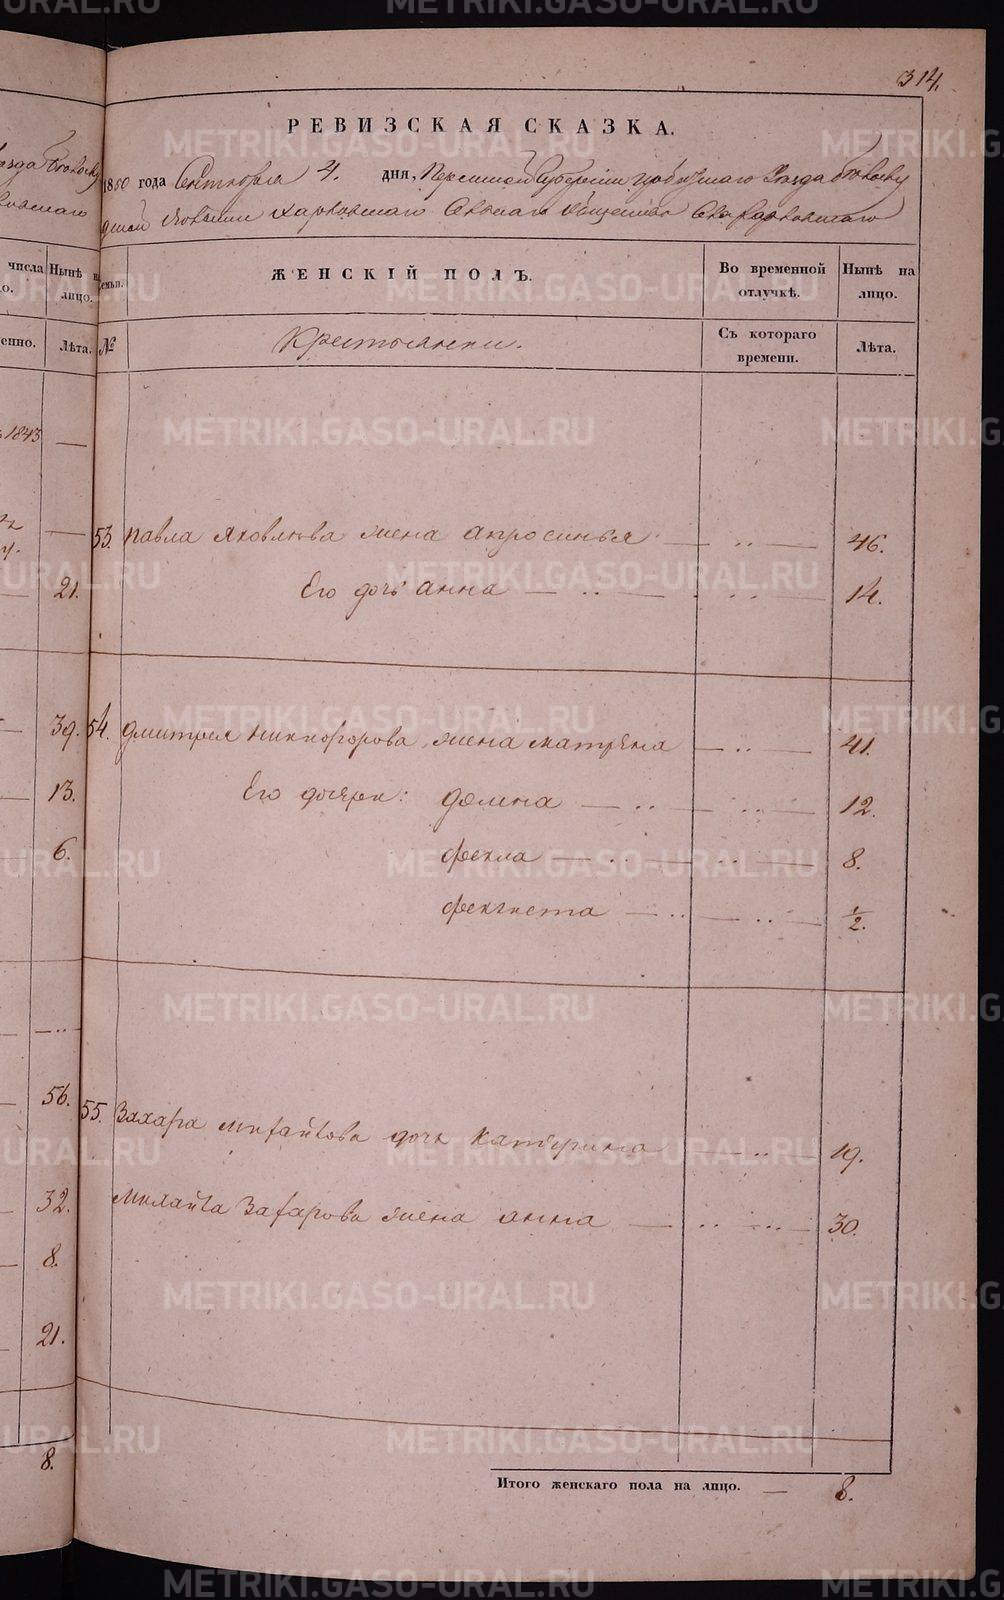 314.
РЕВИЗСКАЯ СКАЗКА.
1850 года Сентября 4. дня, Пермской Губернии Уезда
Харковскаго Сельскаго Общества
числа Нынѣ на лицо.
Семьи. ЖЕНСКІЙ ПОЛЪ. Во временной отлучкѣ. Нынѣ на лицо.
Лѣта. № Крестьянски. Съ котораго времени. Лѣта.
1843 —
53. Павла Яковлева жена Апросинья — 46.
21. Его дочь Анна — 14.
39. 54. Дмитрея Никифорова жена Матрена — 41.
13. Его дочери: Домна — 12.
6. Фекла — 8.
Фекгнета — 1/2.
56. 55. Захара Михайлова дочь Катерина — 19.
32. Михайла Захарова жена Анна — 30.
8.
21.
8.
Итого женскаго пола на лицо. — 8.
METRIKI.GASO-URAL.RU